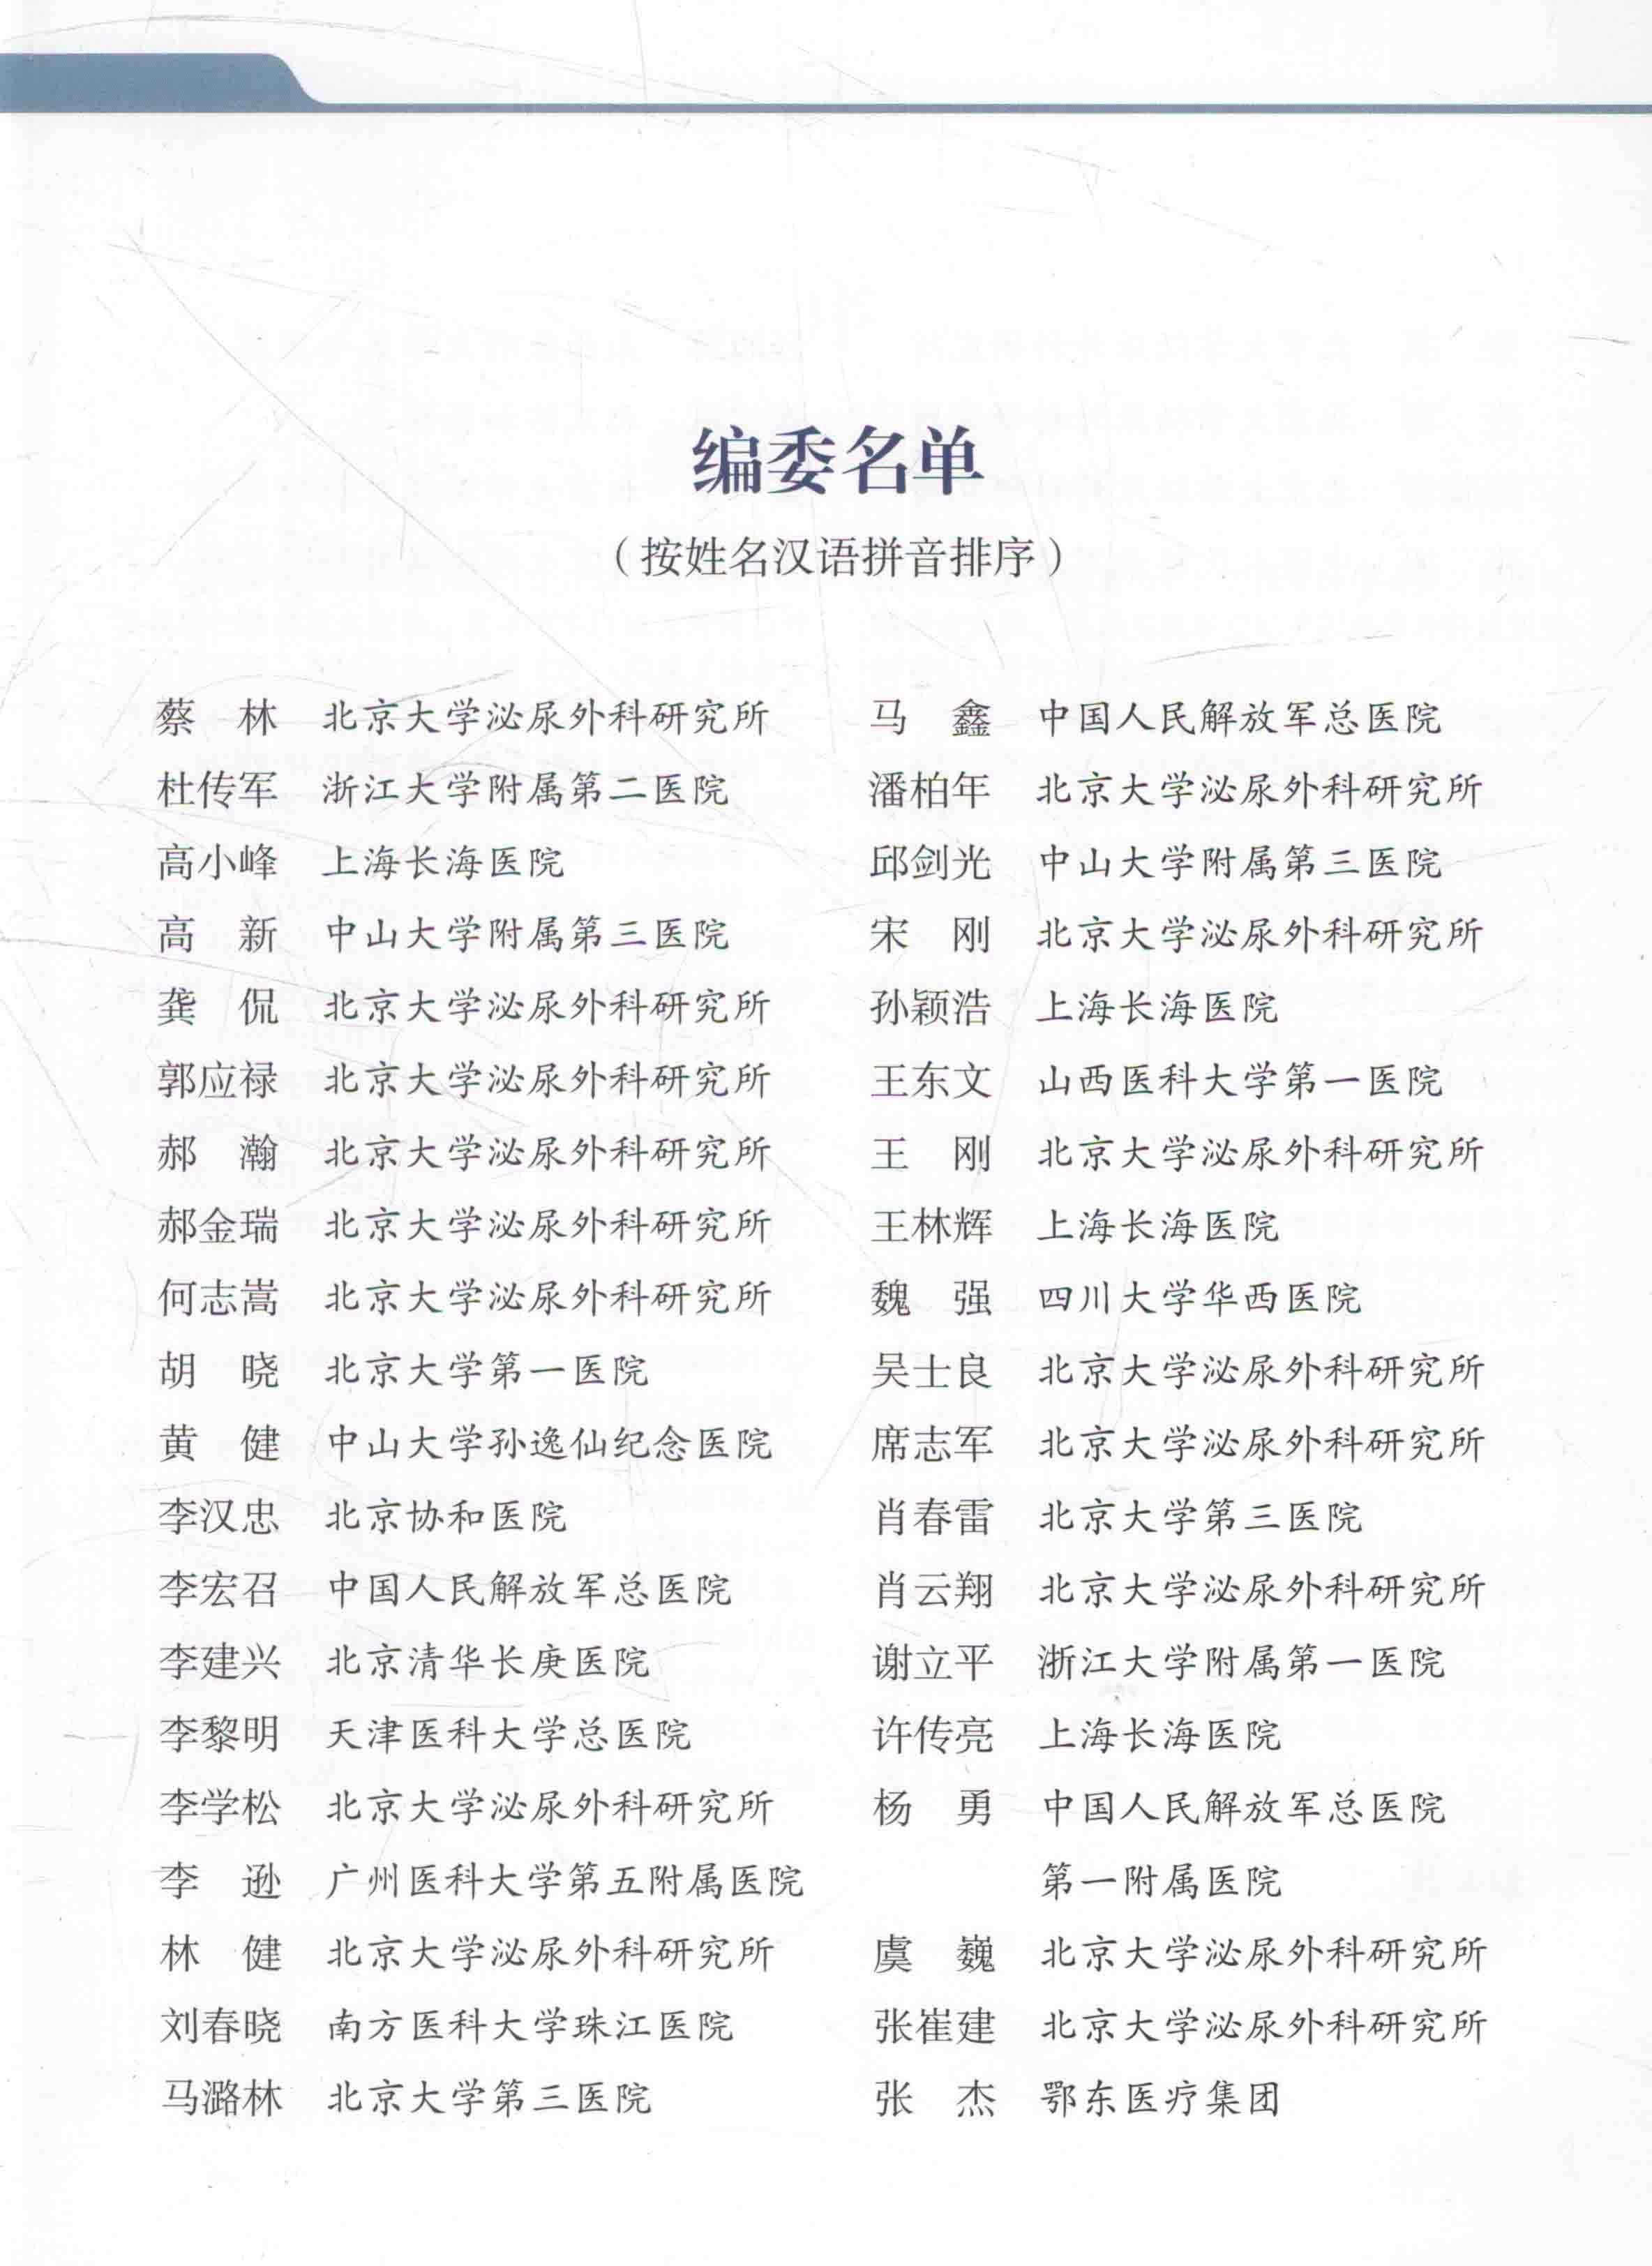 编委名单
（按姓名汉语拼音排序）
蔡　林　北京大学泌尿外科研究所
杜传军　浙江大学附属第二医院
高小峰　上海长海医院
高　新　中山大学附属第三医院
龚　侃　北京大学泌尿外科研究所
郭应禄　北京大学泌尿外科研究所
郝　瀚　北京大学泌尿外科研究所
郝金瑞　北京大学泌尿外科研究所
何志嵩　北京大学泌尿外科研究所
胡　晓　北京大学第一医院
黄　健　中山大学孙逸仙纪念医院
李汉忠　北京协和医院
李宏召　中国人民解放军总医院
李建兴　北京清华长庚医院
李黎明　天津医科大学总医院
李学松　北京大学泌尿外科研究所
李　逊　广州医科大学第五附属医院
林　健　北京大学泌尿外科研究所
刘春晓　南方医科大学珠江医院
马潞林　北京大学第三医院
马　鑫　中国人民解放军总医院
潘柏年　北京大学泌尿外科研究所
邱剑光　中山大学附属第三医院
宋　刚　北京大学泌尿外科研究所
孙颖浩　上海长海医院
王东文　山西医科大学第一医院
王　刚　北京大学泌尿外科研究所
王林辉　上海长海医院
魏　强　四川大学华西医院
吴士良　北京大学泌尿外科研究所
席志军　北京大学泌尿外科研究所
肖春雷　北京大学第三医院
肖云翔　北京大学泌尿外科研究所
谢立平　浙江大学附属第一医院
许传亮　上海长海医院
杨　勇　中国人民解放军总医院
第一附属医院
虞　巍　北京大学泌尿外科研究所
张崔建　北京大学泌尿外科研究所
张　杰　鄂东医疗集团